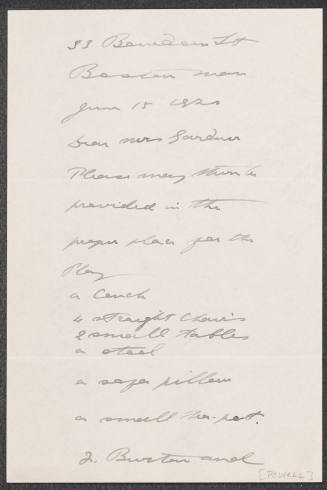 33 Bowdoin St
Boston Mass
June 15 1920
Dear Mrs Gardner
Please may there be
provided in the
proper place for the
Play
a Couch
4 straight Chairs
2 small tables
a stool
a sofa pillow
a small tea-pot.
J. Burton and